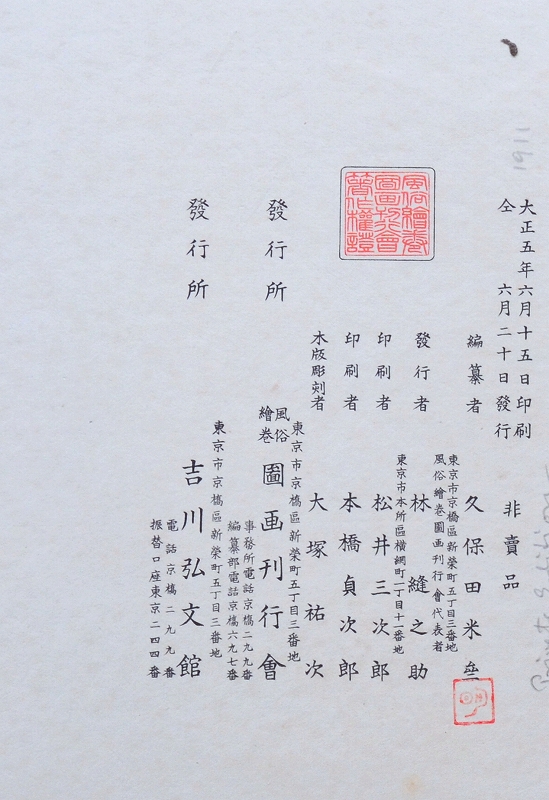 大正五年六月十五日印刷
仝　　　六月二十日發行
非賣品
編纂者
久保田米齋
東京市京橋區新榮町五丁目三番地
風俗繪卷圖画刊行會代表者
發行者
林縫之助
東京市本所區横網町一丁目十一番地
印刷者
松井三次郎
印刷者
本橋貞次郎
木版彫刻者
大塚祐次
風俗繪卷圖画刊行會著作權證
發行所
東京市京橋區新榮町五丁目三番地
風俗繪卷圖画刊行會
事務所電話京橋二九九番
編纂部電話京橋六九七番
發行所
東京市京橋區新榮町五丁目三番地
吉川弘文館
電話京橋二九九番
振替口座東京二四四番
1911